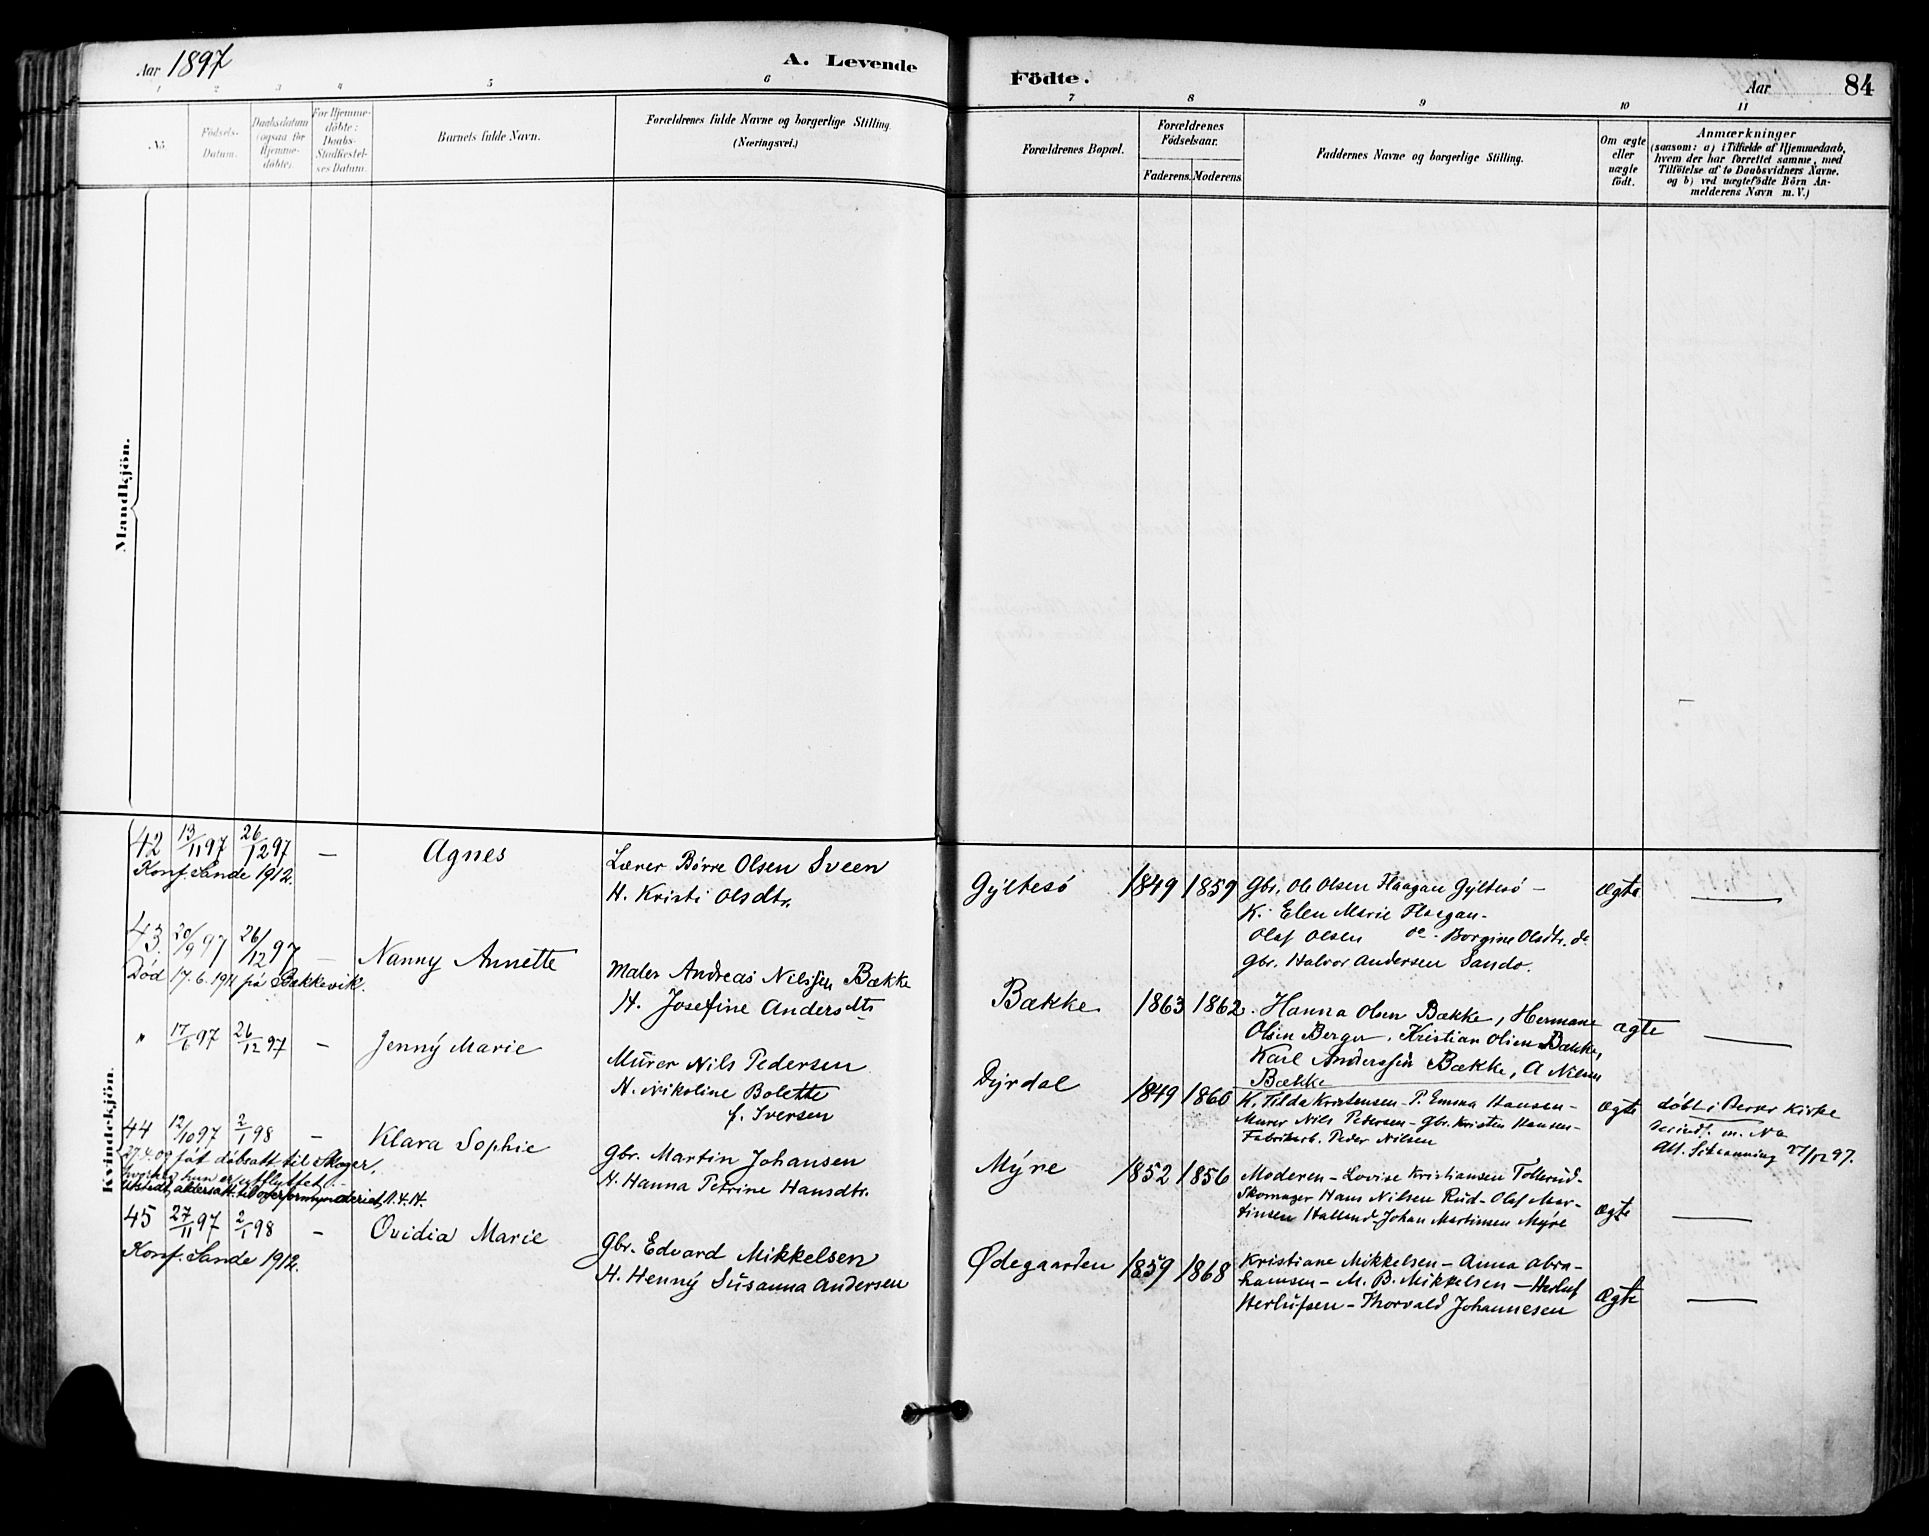 Aar 1897
A. Levende
Födte.
Aar
84
1 2 3 4 5 6 7 8 9 10 11
No.
Födsels-
Datum.
Daabsdatum
(ogsaa for
Hjemme-
döbte).
For Hjemme-
döbte:
Daabs-
Stadfæstel-
ses Datum.
Barnets fulde Navn.
Forældrenes fulde Navne og borgerlige Stilling.
(Næringsvei.)
Forældrenes Bopæl.
Forældrenes
Födselsaar.
Faderens. Moderens.
Faddernes Navne og borgerlige Stilling.
Om ægte
eller
uægte
födt.
Anmærkninger
(saasom: a) i Tilfælde af Hjemmedaab,
hvem der har forrettet samme, med
Tilföielse af to Daabsvidners Navne,
og b) ved uægtefödte Börn An-
melderens Navn m. V.)
Mandkjön.
Kvindekjön.
42 13/11 97 26/12 97 — Agnes
Konf. Sande 1912.
Lærer Børre Olsen Sveen
H. Kristi Olsdtr.
Gyltesö 1849 1859
Gbr. Ole Olsen Haagan Gyltesö —
K. Elen Marie Haagan-
Olaf Olsen do - Borgine Olsdtr. do
Gbr. Halvor Andersen Sando.
Ægte —
43 20/9 97 26/12 97 — Nanny Annette
Död 17.6.1911 på Bækkevik.
Maler Andreas Nilssen Bække
H. Josefine Andersdtr
Bække 1863 1862
Hanna Olsen Bække, Hermane
Olsen Berger, Kristian Olsen Bække,
Karl Anderssen Bække, A Nilsen
Bække
ægte —
" 17/6 97 26/12 97 — Jenny Marie
Murer Nils Pedersen
H. Nikoline Bolette
f. Iversen
Dyrdal 1849 1860
K. Tilda Kristensen - P. Emma Hansen -
Murer Nils Petersen - Gbr. Kristen Hansen -
Fabrikarb. Peder Nilsen
Ægte
döbt i Berger Kirke
m. No
Att. 27/12 97.
44 12/10 97 2/1 98 — Klara Sophie
27.4.09 fåt dåbsatt til Skoger,
hvorhen hun er utflyttet. -
Utstedt aldersatt. t. overformynderiet 1.4.14.
Gbr. Martin Johansen
H. Hanna Petrine Hansdtr.
Myre 1852 1856
Moderen - Lovise Kristiansen Tollerud -
Skomager Hans Nilsen Rud - Olaf Mar-
tinsen Halland - Johan Martinsen Myre
Ægte —
45 27/11 97 2/1 98 — Ovidia Marie
Konf. Sande 1912.
Gbr. Edvard Mikkelsen
H. Henny Susanna Andersen
Ødegaarden 1859 1868
Kristiane Mikkelsen - Anna Abra-
hamsen - M. B. Mikkelsen - Herluf
Herlufsen - Thorvald Johannesen
Ægte —